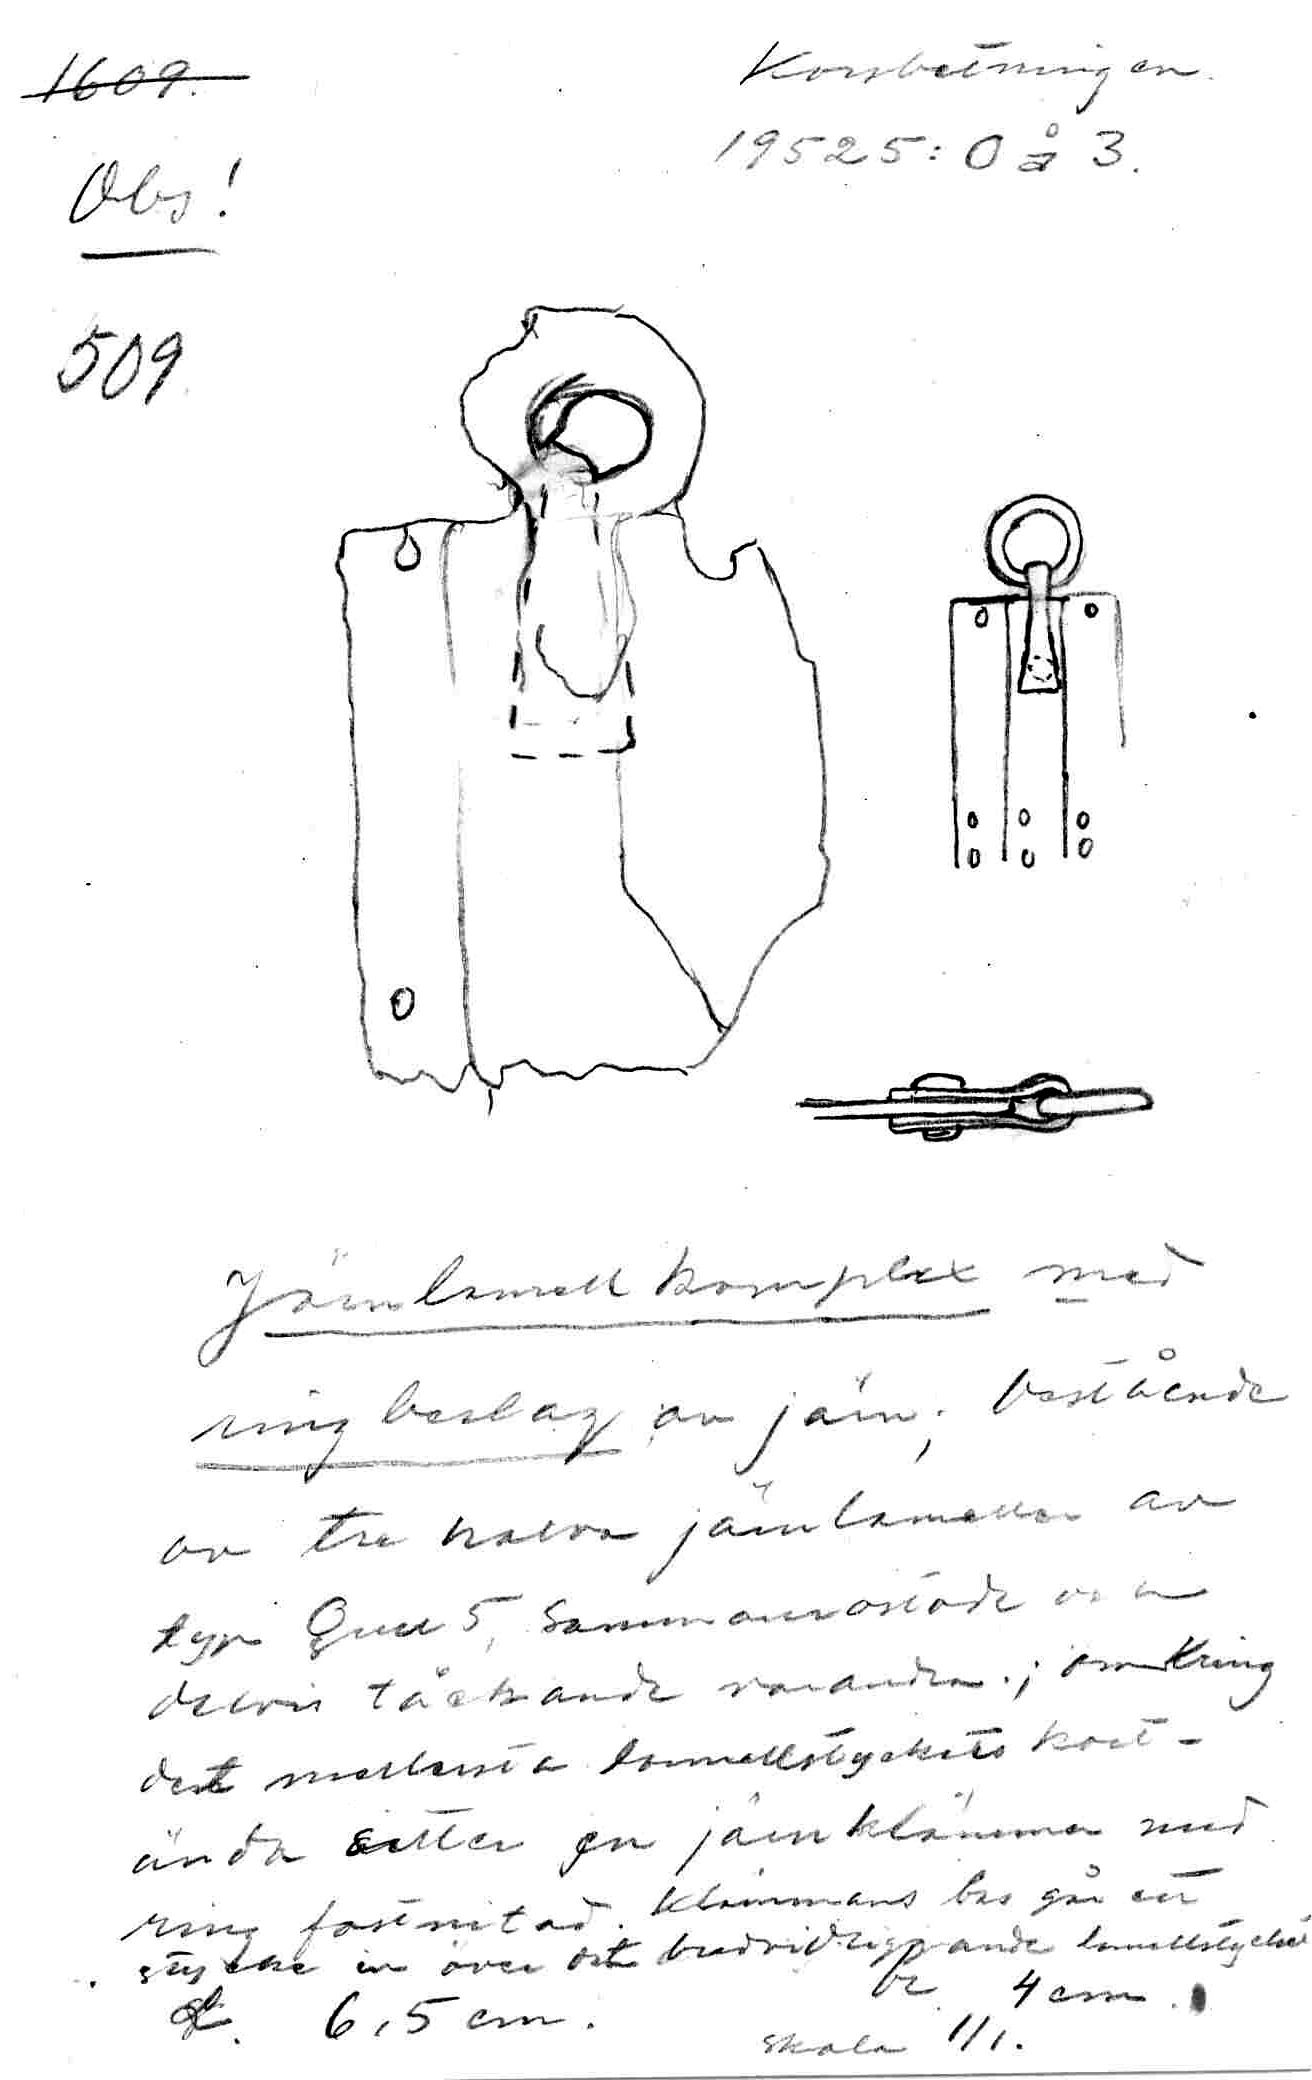 1609.
Korsbetningen
19525: O å 3.
Obs!
509
Järnlamell komplex med
ringbeslag av järn; bestående
av tre halva järnlameller av
typ 5, Sammanrostade
delvis täckande varandra.; omkring
det mellersta lamellstyckets kort-
ända sitter en järnklämma med
ring fastnitad. Klämmans bas går ett
stycke in över det bredvidliggande lamellstycket
6,5 cm. br. 4 cm.
skala 1/1.